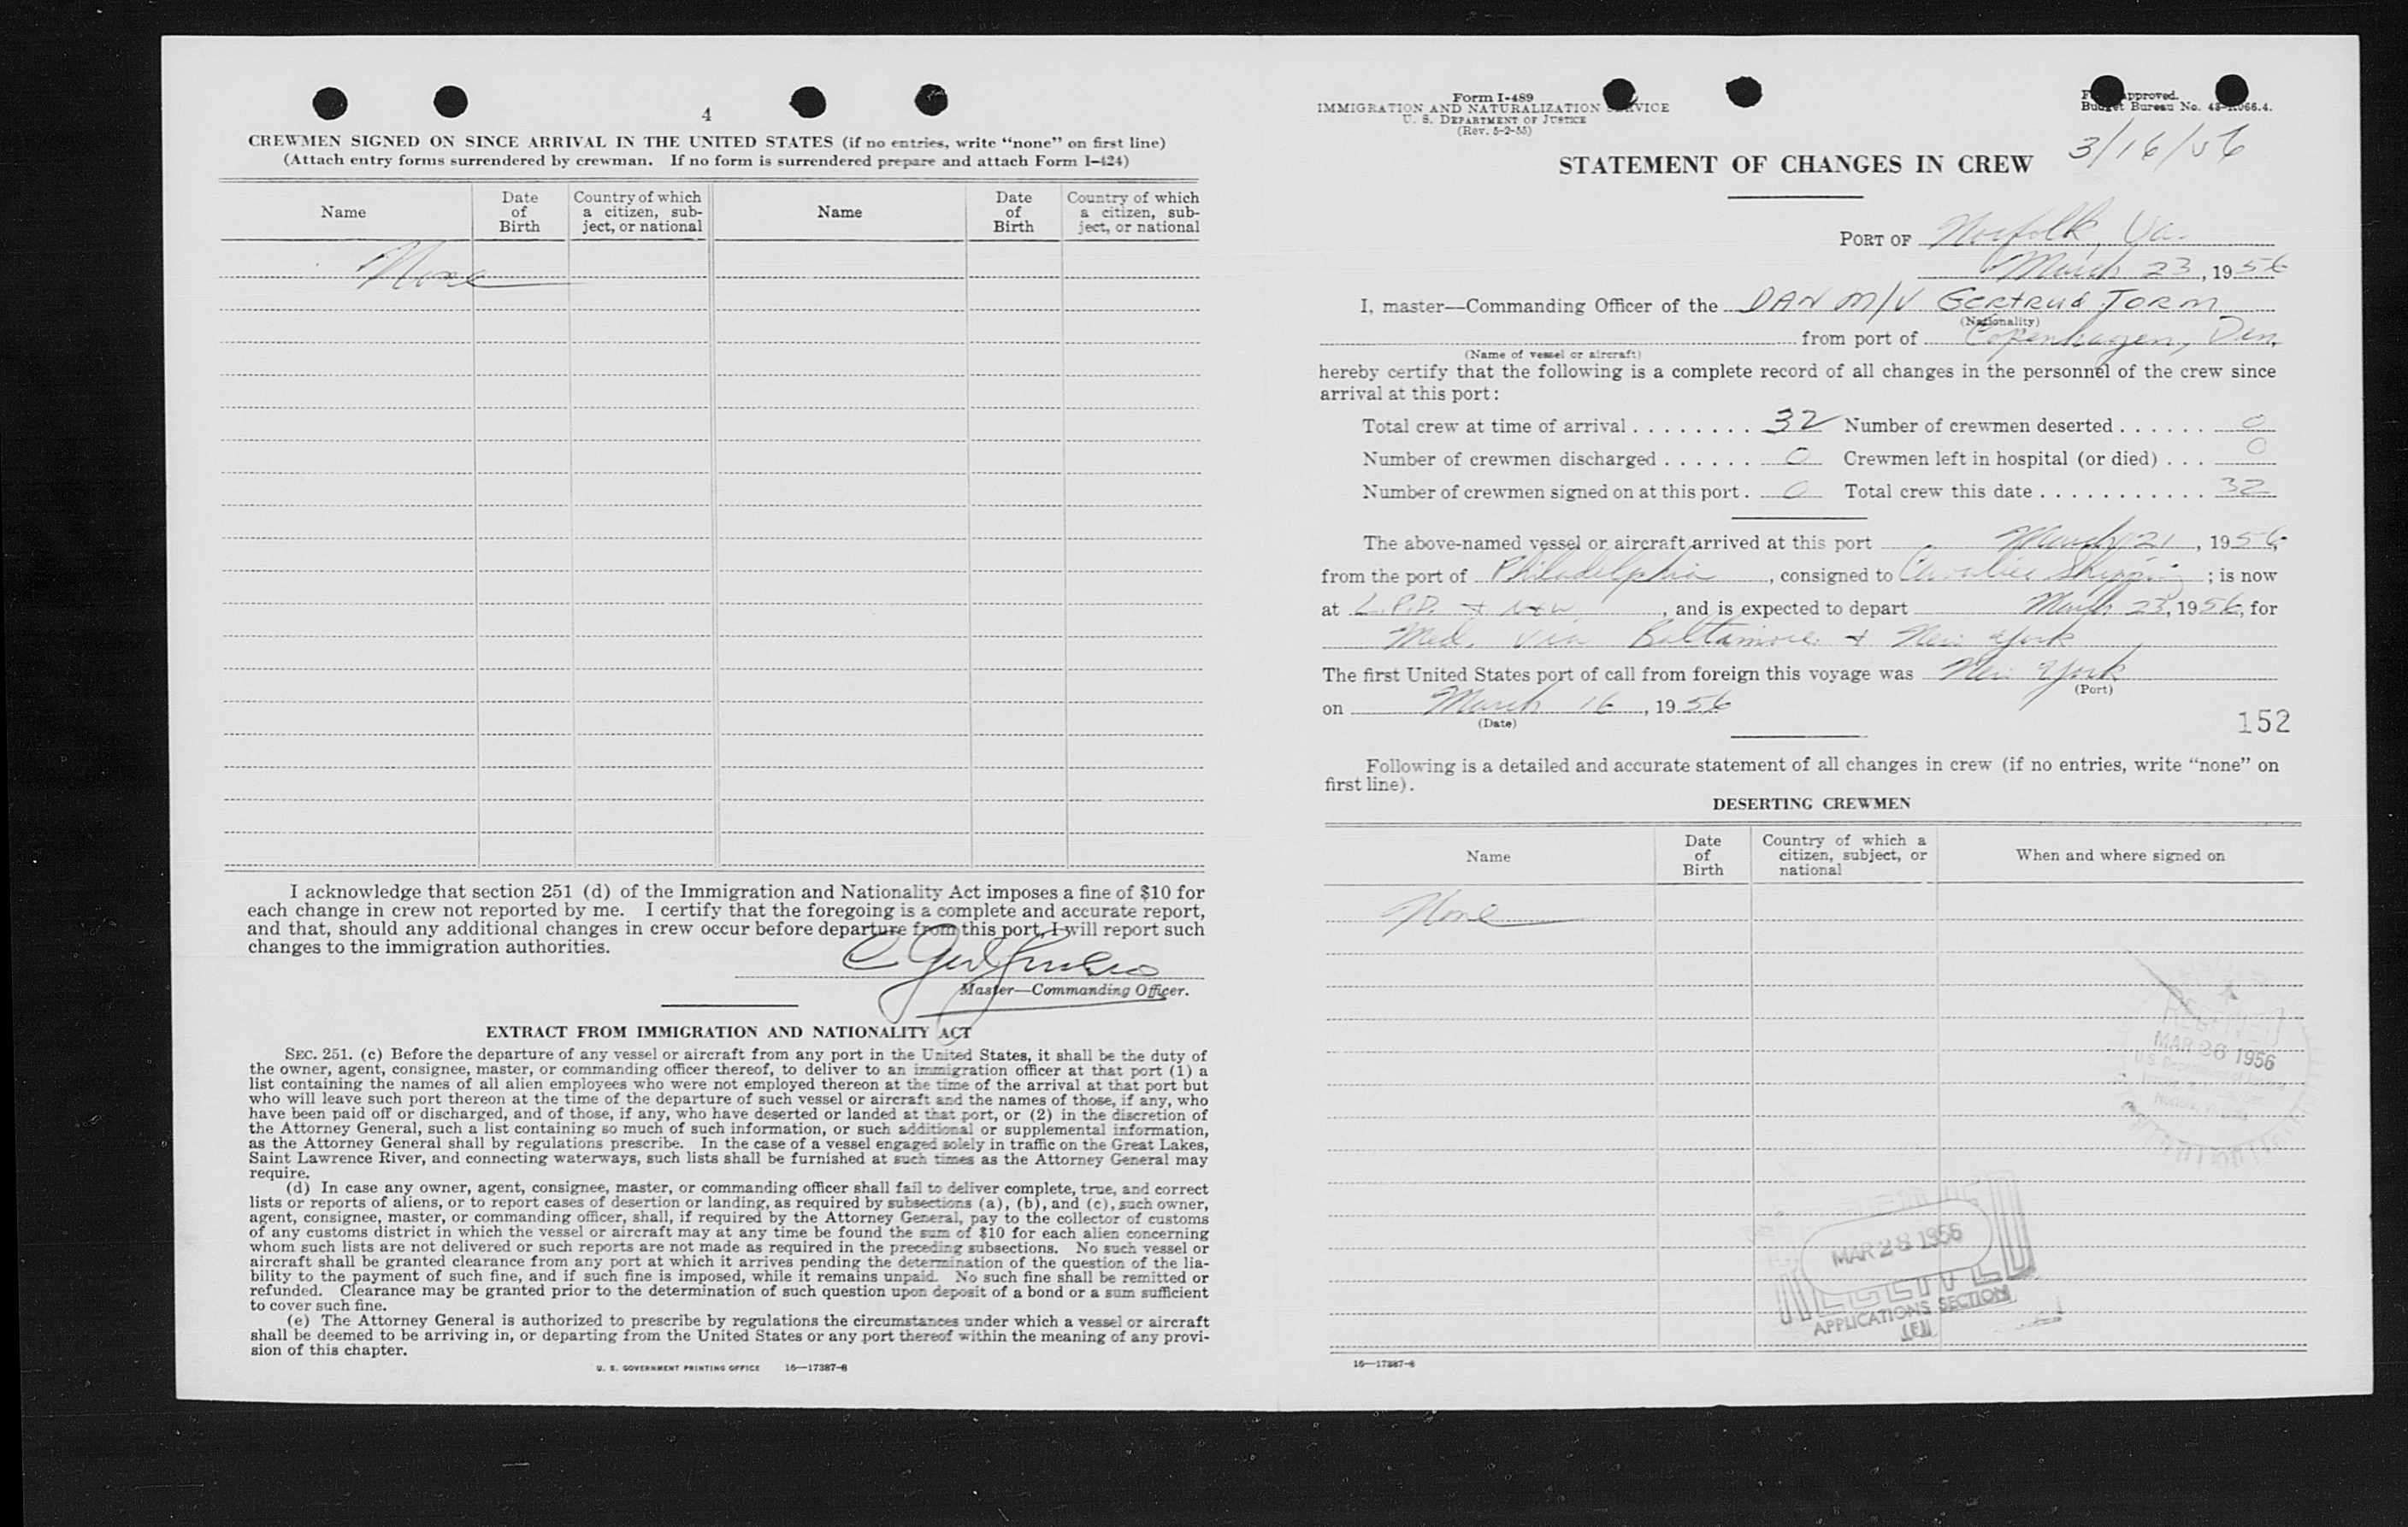 4
CREWMEN SIGNED ON SINCE ARRIVAL IN THE UNITED STATES (if no entries, write “none” on first line)
(Attach entry forms surrendered by crewman. If no form is surrendered prepare and attach Form I–424)
Name
Date of Birth
Country of which a citizen, sub-ject, or national
Name
Date of Birth
Country of which a citizen, sub-ject, or national
None
I acknowledge that section 251 (d) of the Immigration and Nationality Act imposes a fine of $10 for
each change in crew not reported by me. I certify that the foregoing is a complete and accurate report,
and that, should any additional changes in crew occur before departure from this port, I will report such
changes to the immigration authorities.
Master—Commanding Officer.
EXTRACT FROM IMMIGRATION AND NATIONALITY ACT
SEC. 251. (c) Before the departure of any vessel or aircraft from any port in the United States, it shall be the duty of
the owner, agent, consignee, master, or commanding officer thereof, to deliver to an immigration officer at that port (1) a
list containing the names of all alien employees who were not employed thereon at the time of the arrival at that port but
who will leave such port thereon at the time of the departure of such vessel or aircraft and the names of those, if any, who
have been paid off or discharged, and of those, if any, who have deserted or landed at that port, or (2) in the discretion of
the Attorney General, such a list containing so much of such information, or such additional or supplemental information,
as the Attorney General shall by regulations prescribe. In the case of a vessel engaged solely in traffic on the Great Lakes,
Saint Lawrence River, and connecting waterways, such lists shall be furnished at such times as the Attorney General may
require.
(d) In case any owner, agent, consignee, master, or commanding officer shall fail to deliver complete, true, and correct
lists or reports of aliens, or to report cases of desertion or landing, as required by subsections (a), (b), and (c), such owner,
agent, consignee, master, or commanding officer, shall, if required by the Attorney General, pay to the collector of customs
of any customs district in which the vessel or aircraft may at any time be found the sum of $10 for each alien concerning
whom such lists are not delivered or such reports are not made as required in the preceding subsections. No such vessel or
aircraft shall be granted clearance from any port at which it arrives pending the determination of the question of the lia-
bility to the payment of such fine, and if such fine is imposed, while it remains unpaid. No such fine shall be remitted or
refunded. Clearance may be granted prior to the determination of such question upon deposit of a bond or a sum sufficient
to cover such fine.
(e) The Attorney General is authorized to prescribe by regulations the circumstances under which a vessel or aircraft
shall be deemed to be arriving in, or departing from the United States or any port thereof within the meaning of any provi-
sion of this chapter.
U. S. GOVERNMENT PRINTING OFFICE 16—17387-8
Form I-489
IMMIGRATION AND NATURALIZATION SERVICE
U. S. DEPARTMENT OF JUSTICE
(Rev. 5-2-55)
approved.
Budget Bureau No. 43-R066.4.
3/16/56
STATEMENT OF CHANGES IN CREW
PORT OF Norfolk, Va.
March 23, 1956
I, master—Commanding Officer of the DAN M/V Gertrud Torm
(Nationality)
from port of Copenhagen, Den.
(Name of vessel or aircraft)
hereby certify that the following is a complete record of all changes in the personnel of the crew since
arrival at this port:
Total crew at time of arrival ........ 32 Number of crewmen deserted ...... 0
Number of crewmen discharged ...... 0 Crewmen left in hospital (or died) ... 0
Number of crewmen signed on at this port. 0 Total crew this date ............ 32
The above-named vessel or aircraft arrived at this port March 21, 1956,
from the port of Philadelphia, consigned to Shipping; is now
at , and is expected to depart March 23, 1956, for
Med. via Baltimore & New York
The first United States port of call from foreign this voyage was New York
(Port)
on March 16, 1956
(Date)
152
Following is a detailed and accurate statement of all changes in crew (if no entries, write “none” on
first line).
DESERTING CREWMEN
Name
Date of Birth
Country of which a citizen, subject, or national
When and where signed on
None
MAR 26 1956
MAR 28 1956
RECEIVED
APPLICATIONS SECTION
16—17387-8